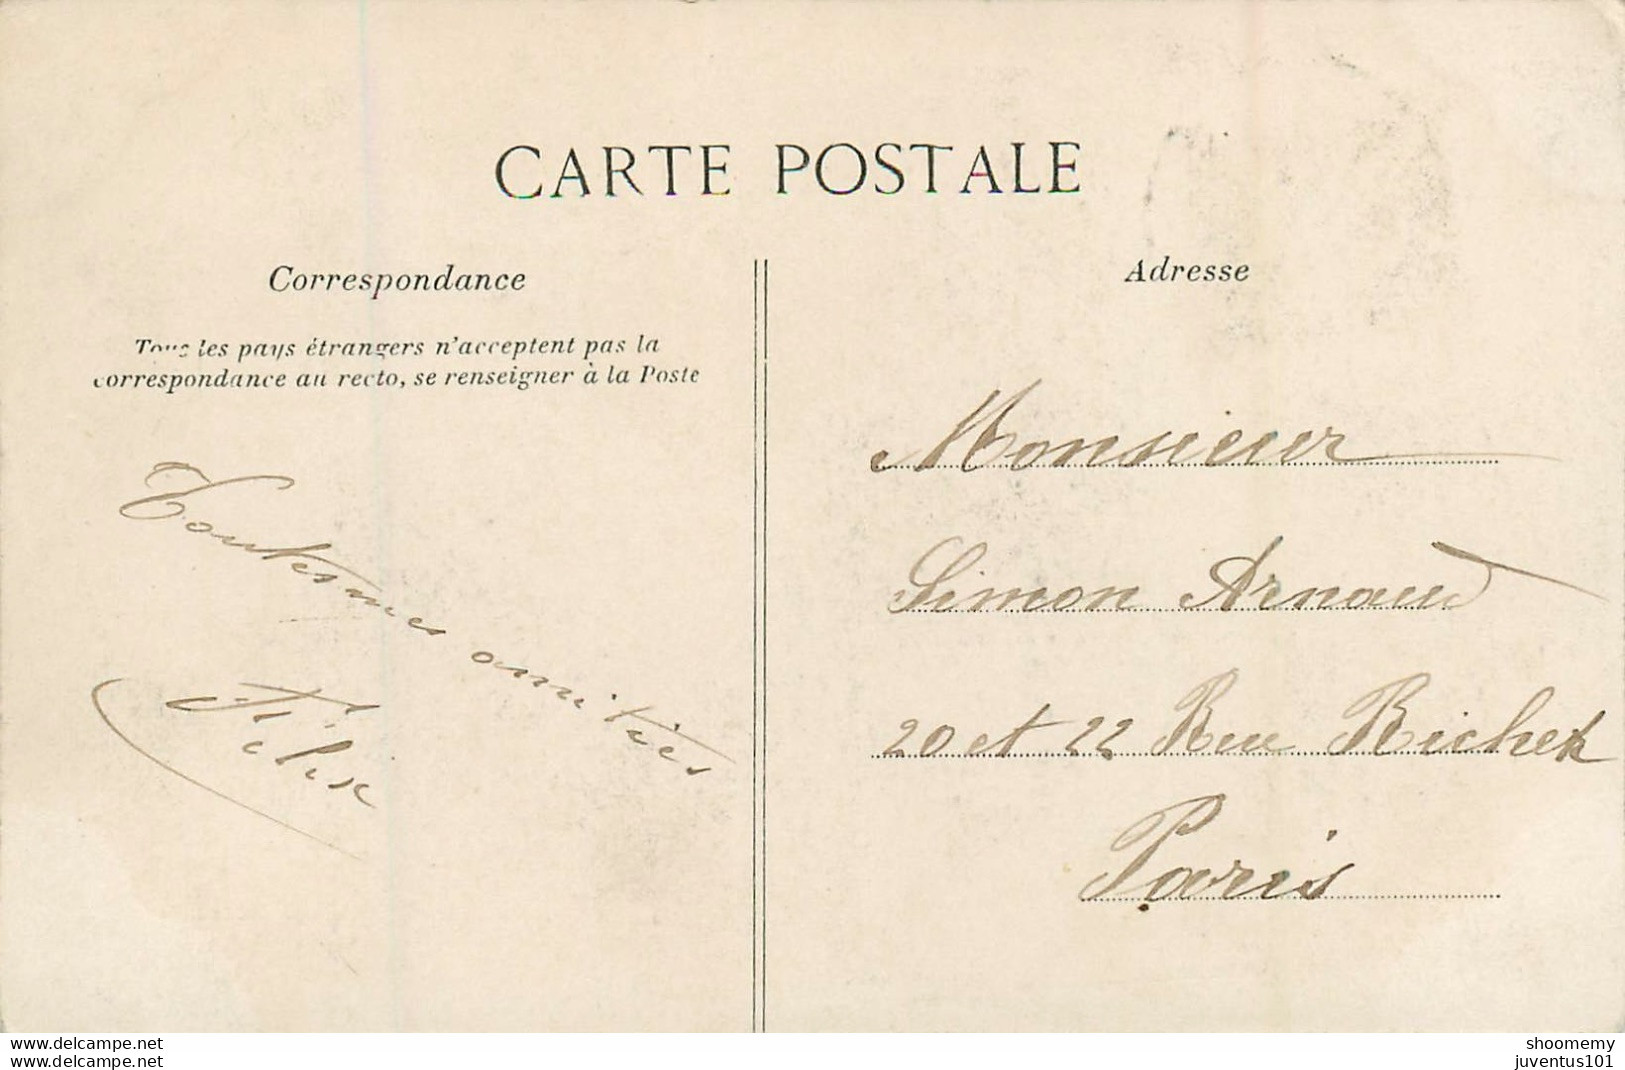 CARTE POSTALE
Correspondance
Tous les pays étrangers n'acceptent pas la
correspondance au recto, se renseigner à la Poste
Toutes mes amitiés
Félix
Adresse
Monsieur
Simon Arnaud
20 et 22 Rue Richer
Paris
www.delcampe.net
www.delcampe.net
shoomemy
juventus101